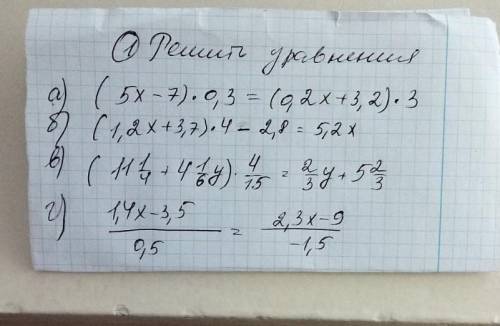 ① Решить уравнения
а) (5x-7)·0,3 = (0,2x+3,2)·3
б) (1,2x+3,7)·4 - 2,8 = 5,2x
в) (11 1/4 + 4 1/6 y)·4/15 = 2/3 y + 5 2/3
г) (1,4x-3,5)/0,5 = (2,3x-9)/-1,5